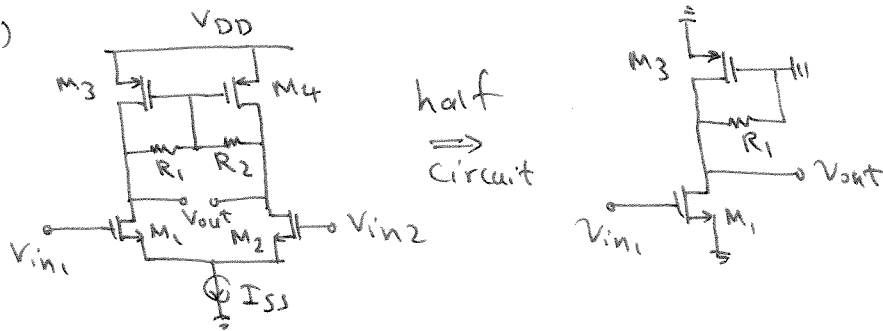 )
VDD
M3
M4
R1
R2
Vout
M1
M2
Vin1
Vin2
ISS
half
⇒
circuit
M3
R1
Vout
Vin1
M1